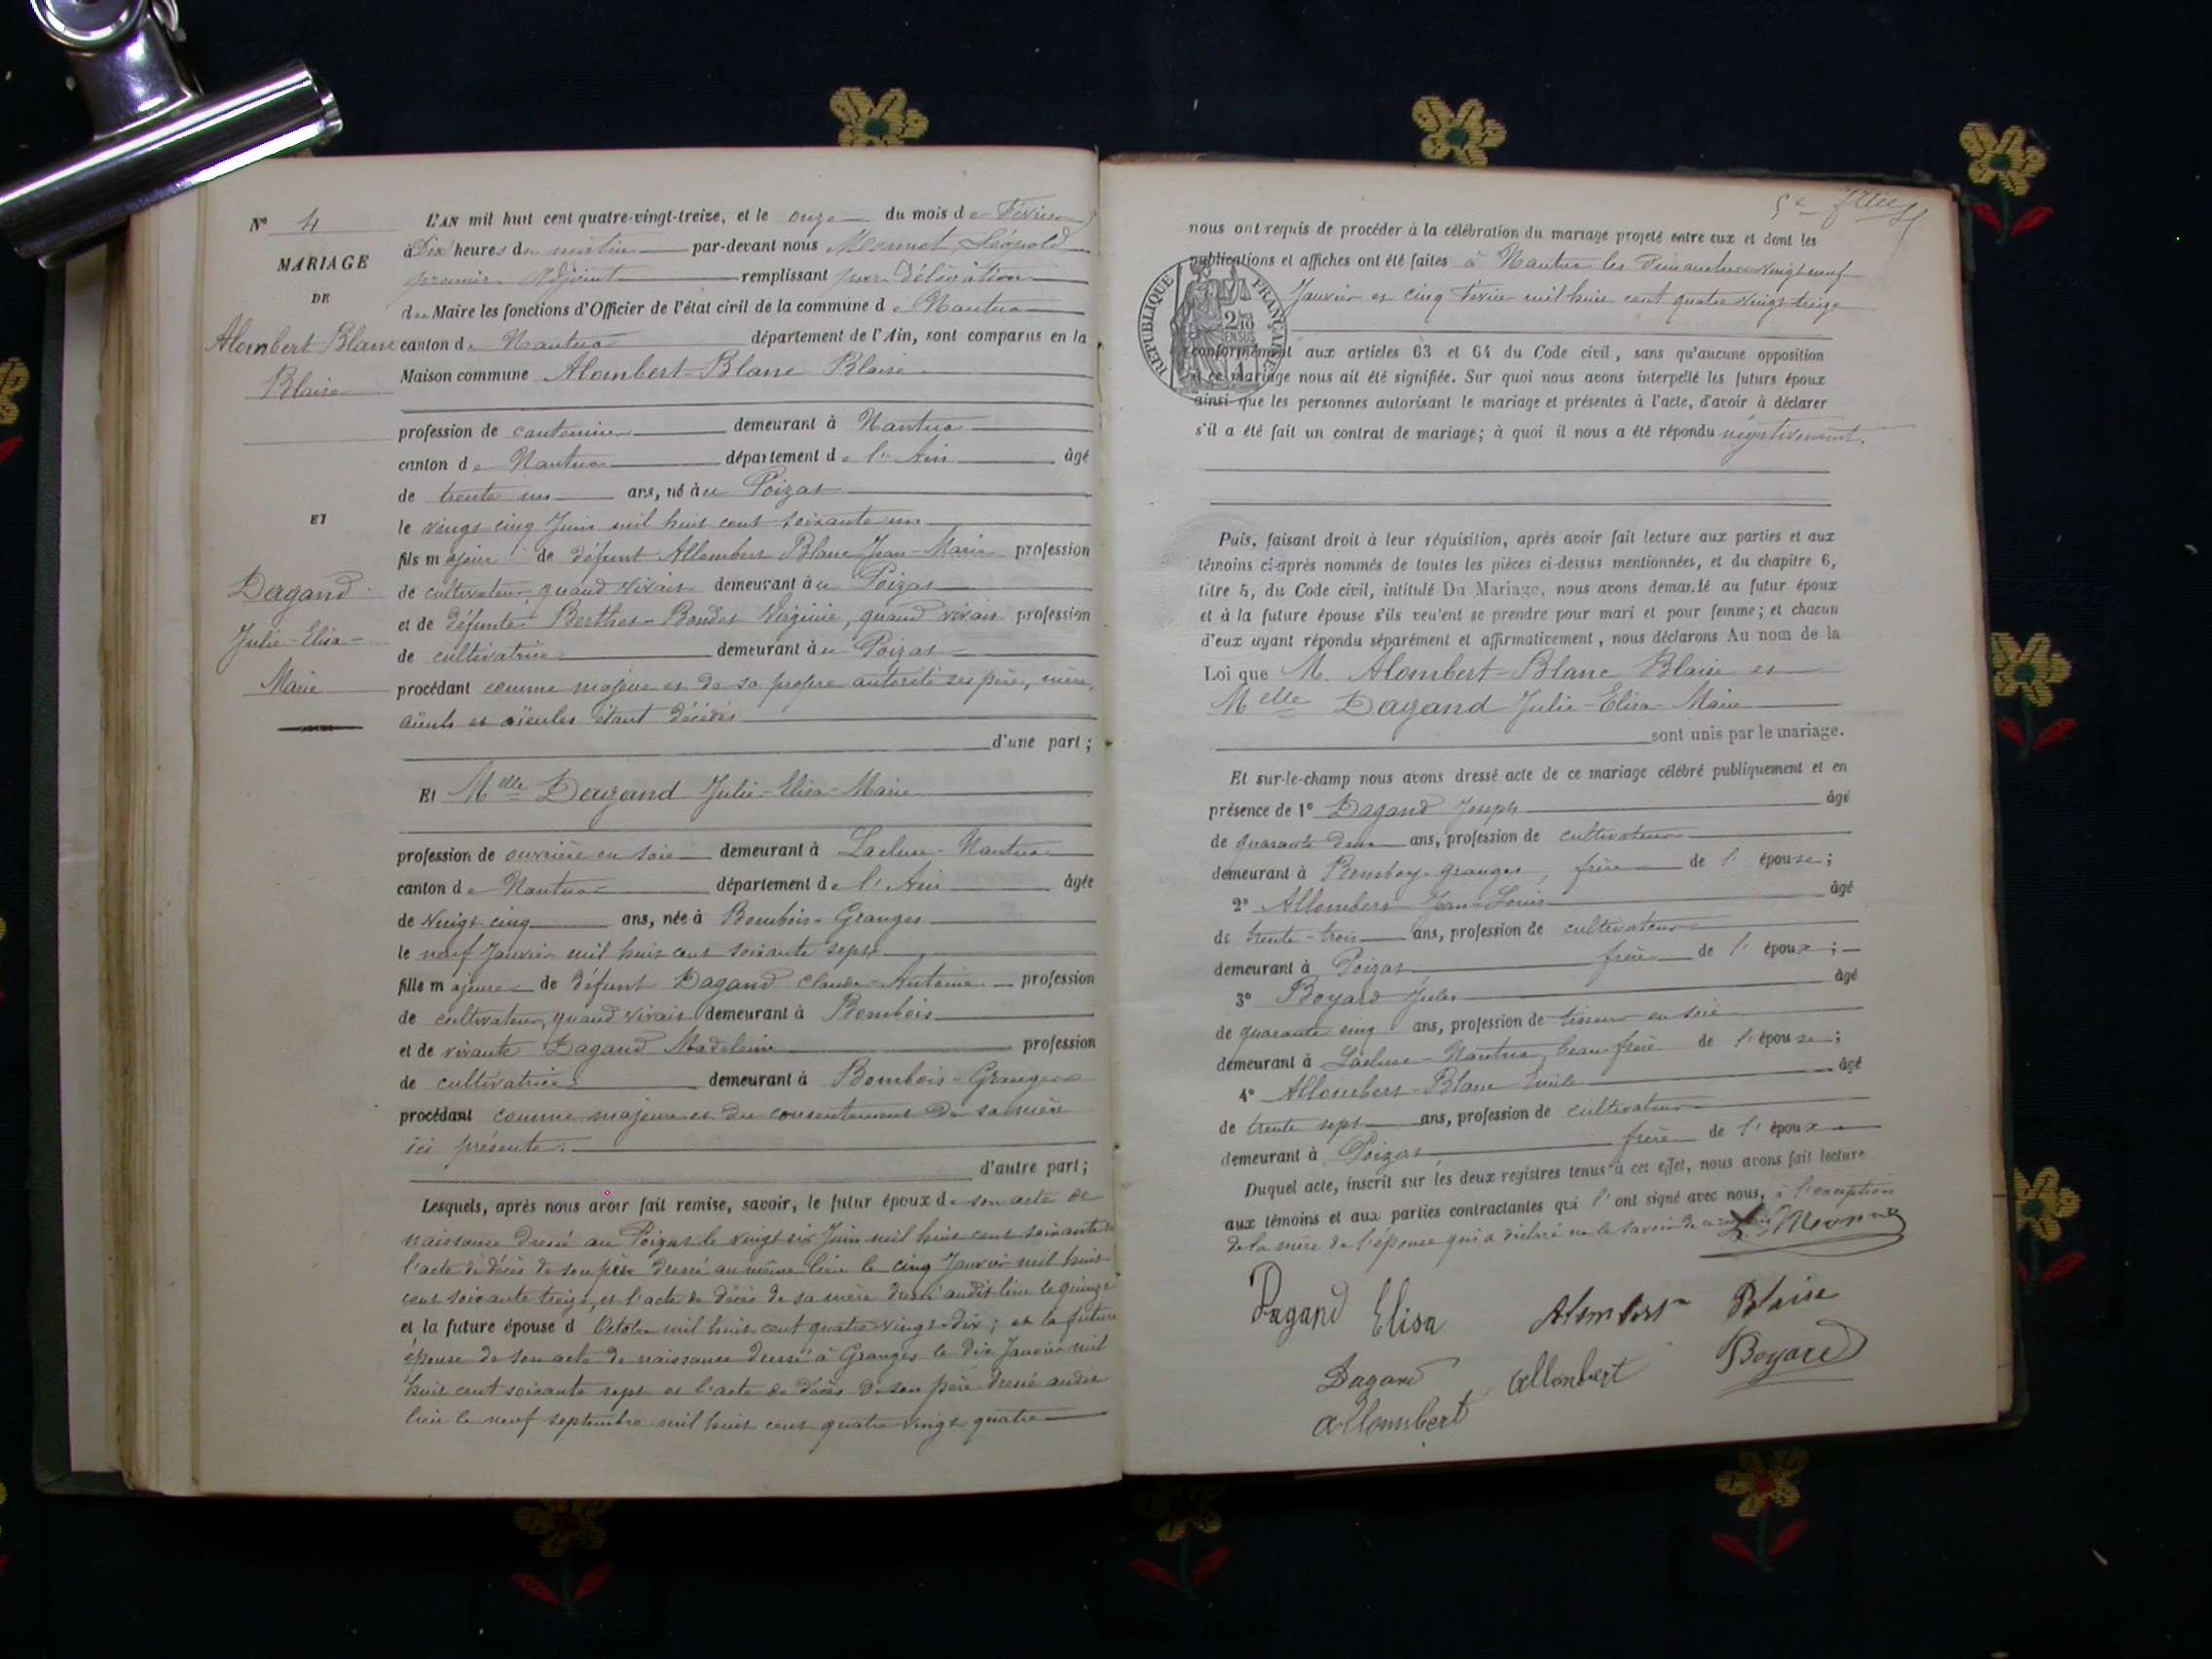 N° 4
MARIAGE
DE
Alombert Blanc
Blaise
ET
Dagand
Julie-Elisa-
Marie
L'AN mil huit cent quatre-vingt-treize, et le onze du mois de Février
à Dix heures du matin par-devant nous Monnet Léopold
premier Adjoint remplissant par Délégation
du Maire les fonctions d'Officier de l'état civil de la commune de Nantua
canton de Nantua département de l'Ain, sont comparus en la
Maison commune Alombert-Blanc Blaise
profession de demeurant à Nantua
canton de Nantua département de l'Ain âgé
de trente un ans, né au Poizat
le vingt cinq Juin mil huit cent soixante un
fils majeur de défunt Allombert Blanc Jean-Marie profession
de cultivateur, quand vivait demeurant au Poizat
et de défunte Berthet-Bondet Virginie, quand vivait profession
de cultivatrice demeurant au Poizat
procédant comme majeur et de sa propre autorité ses père, mère,
aïeuls et aïeules étant décédés
d'une part;
Et Melle Dagand Julie-Elisa-Marie
profession de ouvrière en soie demeurant à Lacluse-Nantua
canton de Nantua département de l'Ain âgée
de vingt cinq ans, née à Bombois-Granges
le neuf Janvier mil huit cent soixante sept
fille majeure de défunt Dagand Claude-Antoine profession
de cultivateur, quand vivait demeurant à Bombois
et de vivante Dagand Madeleine profession
de cultivatrice demeurant à Bombois-Granges
procédant comme majeure et du consentement de sa mère
ici présente.
d'autre part;
Lesquels, après nous avoir fait remise, savoir, le futur époux de son acte de
naissance dressé au Poizat le vingt six Juin mil huit cent soixante un
l'acte de décès de son père dressé au même lieu le cinq Janvier mil huit
cent soixante treize, et l'acte de décès de sa mère dressé audit lieu le quinze
et la future épouse d Octobre mil huit cent quatre vingt-dix; et la future
épouse de son acte de naissance dressé à Granges le dix Janvier mil
huit cent soixante sept et l'acte de décès de son père dressé audit
lieu le neuf septembre mil huit cent quatre vingt quatre
nous ont requis de procéder à la célébration du mariage projeté entre eux et dont les
publications et affiches ont été faites à Nantua les Dimanches vingt neuf
Janvier et cinq Février mil huit cent quatre vingt treize
REPUBLIQUE FRANÇAISE
2/10 EN SUS
conformément aux articles 63 et 64 du Code civil, sans qu'aucune opposition
à ce mariage nous ait été signifiée. Sur quoi nous avons interpellé les futurs époux
ainsi que les personnes autorisant le mariage et présentes à l'acte, d'avoir à déclarer
s'il a été fait un contrat de mariage; à quoi il nous a été répondu négativement.
Puis, faisant droit à leur réquisition, après avoir fait lecture aux parties et aux
témoins ci-après nommés de toutes les pièces ci-dessus mentionnées, et du chapitre 6,
titre 5, du Code civil, intitulé Du Mariage, nous avons demandé au futur époux
et à la future épouse s'ils veulent se prendre pour mari et pour femme; et chacun
d'eux ayant répondu séparément et affirmativement, nous déclarons Au nom de la
Loi que M. Alombert-Blanc Blaise et
Melle Dagand Julie-Elisa-Marie
sont unis par le mariage.
Et sur-le-champ nous avons dressé acte de ce mariage célébré publiquement et en
présence de 1° Dagand Joseph âgé
de quarante deux ans, profession de cultivateur
demeurant à granges, frère de l'épouse;
2° Allombert Jean-Louis âgé
de trente-trois ans, profession de cultivateur
demeurant à Poizat frère de l'époux;
3° Boyard Jules âgé
de quarante cinq ans, profession de tisseur en soie
demeurant à Lacluse-Nantua, beau-frère de l'épouse;
4° Allombert-Blanc Emile âgé
de trente sept ans, profession de cultivateur
demeurant à Poizat frère de l'époux
Duquel acte, inscrit sur les deux registres tenus à cet effet, nous avons fait lecture
aux témoins et aux parties contractantes qui l'ont signé avec nous, à l'exception
de la mère de l'épouse qui a déclaré ne le savoir de ce requise
Dagand Elisa Alombert Blaise
Dagand Allombert Boyard
Allombert